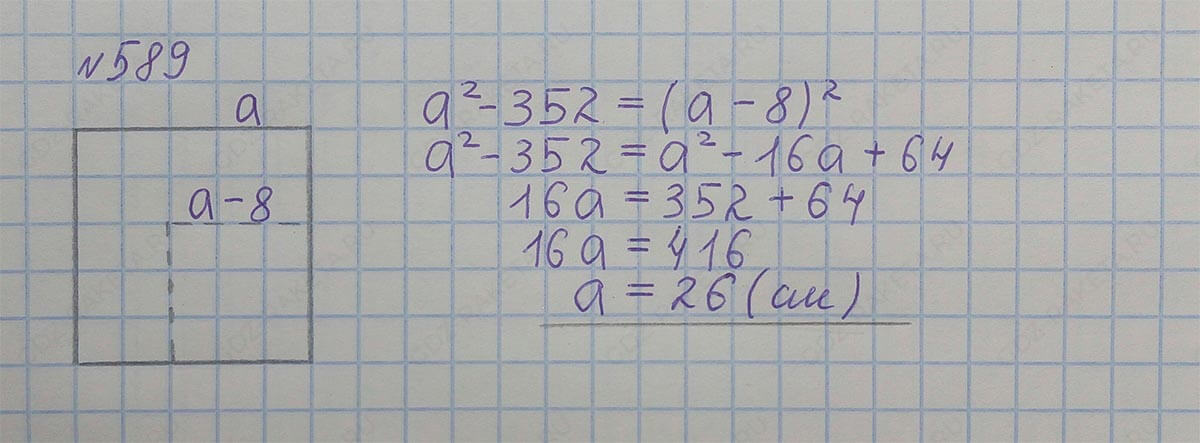 №589
a
a-8
a²-352=(a-8)²
a²-352=a²-16a+64
16a=352+64
16a=416
a=26(см)